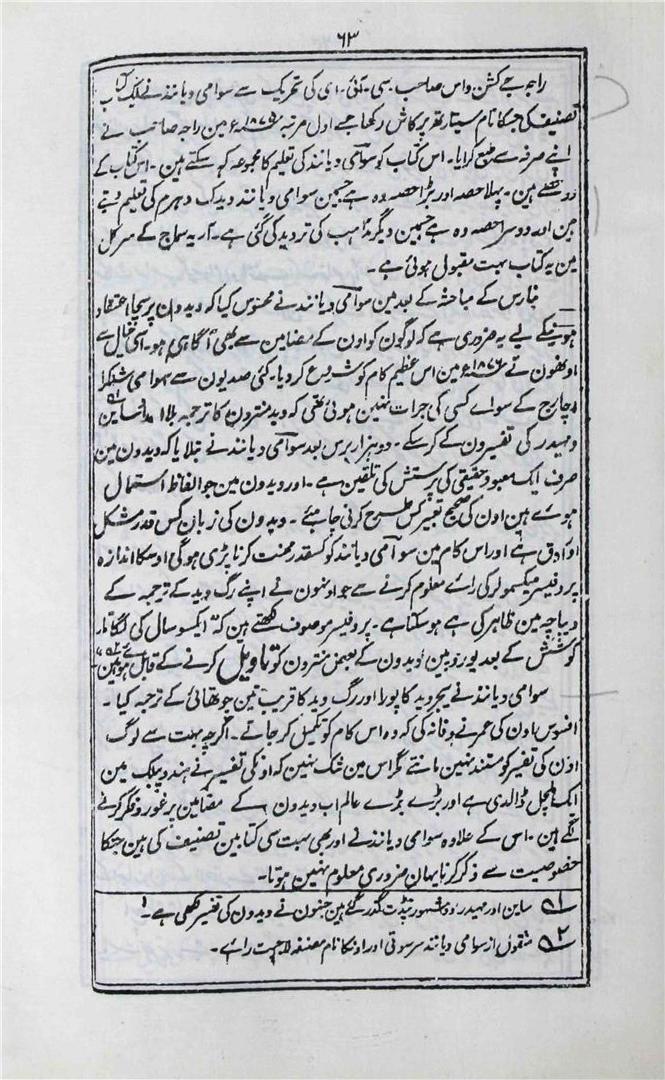 ۶۳
راجہ جے کشن داس صاحب سی۔ آئی۔ ای کی تحریک سے سوامی دیانند نے ایک کتاب
تصنیف کی جسکا نام ستیارتھ پرکاش رکھا جسے اول مرتبہ ۱۸۷۵ء مین راجہ صاحب نے
اپنے صرفہ سے طبع کرایا۔ اس کتاب کو سوامی دیانند کی تعلیم کا مجموعہ کہہ سکتے ہین۔ اس کتاب کے
دو حصے ہین۔ پہلا حصہ اور بڑا حصہ وہ ہے جسمین سوامی دیانند ویدک دھرم کی تعلیم دیتے
ہین اور دوسرا حصہ وہ ہے جسمین دیگر مذاہب کی تردید کی گئی ہے۔ آریہ سماج کے سرکل
مین یہ کتاب بہت مقبول ہوئی ہے۔
بنارس کے مباحثہ کے بعد مین سوامی دیانند نے محسوس کیا کہ ویدون پر سچا اعتقاد
ہونیکے لیے یہ ضروری ہے کہ لوگون کو اون کے مضامین سے بھی آگاہی ہو۔ اسی خیال سے
اونھون نے ۱۸۷۶ء مین اس عظیم کام کو شروع کر دیا۔ کئی صدیون سے سوامی شنکرا
چارج کے سواے کسی کی جرات نہین ہوئی تھی کہ وید منترون کا ترجمہ بلا امداد ساین
و مہیدر کی تفسیرون کے کر سکے۔ دو ہزار برس بعد سوامی دیانند نے بتلایا کہ ویدون مین
صرف ایک معبود حقیقی کی پرستش کی تلقین ہے۔ اور ویدون مین جو الفاظ استعمال
ہوے ہین اون کی صحیح تعبیر کس طرح کرنی چاہیے۔ ویدون کی زبان کس قدر مشکل
اور ادق ہے اور اس کام مین سوامی دیانند کو کسقدر محنت کرنا پڑی ہوگی اوسکا اندازہ
پروفیسر میکسمولر کی راے معلوم کرنے سے جو اونہون نے اپنے رگ وید کے ترجمہ کے
دیباچہ مین ظاہر کی ہے ہو سکتا ہے۔ پروفیسر موصوف لکھتے ہین کہ ایکسو سال کی لگاتار
کوشش کے بعد یوروپین ویدون کے بعض منترون کو تاویل کرنے کے قابل ہوے ہین
سوامی دیانند نے یجروید کا پورا اور رگ وید کا قریب تین چوتھائی کے ترجمہ کیا۔
افسوس اون کی عمر نے وفا نہ کی کہ وہ اس کام کو تکمیل کر جاتے۔ اگرچہ بہت سے لوگ
اون کی تفسیر کو مستند نہین مانتے مگر اس مین شک نہین کہ اونکی تفسیر نے ہندو پبلک مین
ایک ہلچل ڈالدی ہے اور بڑے بڑے عالم اب ویدون کے مضامین پر غور و فکر کرنے
لگے ہین۔ اس کے علاوہ سوامی دیانند نے اور بھی بہت سی کتابین تصنیف کی ہین جنکا
خصوصیت سے ذکر کرنا یہان ضروری معلوم نہین ہوتا۔
۱ ساین اور مہیدر دو مشہور پنڈت گذر گئے ہین جنھون نے ویدون کی تفسیر لکھی ہے۔
۲ منقول از سوامی دیانند سرسوتی اور اونکا نام مصنفہ لاجپت راے۔